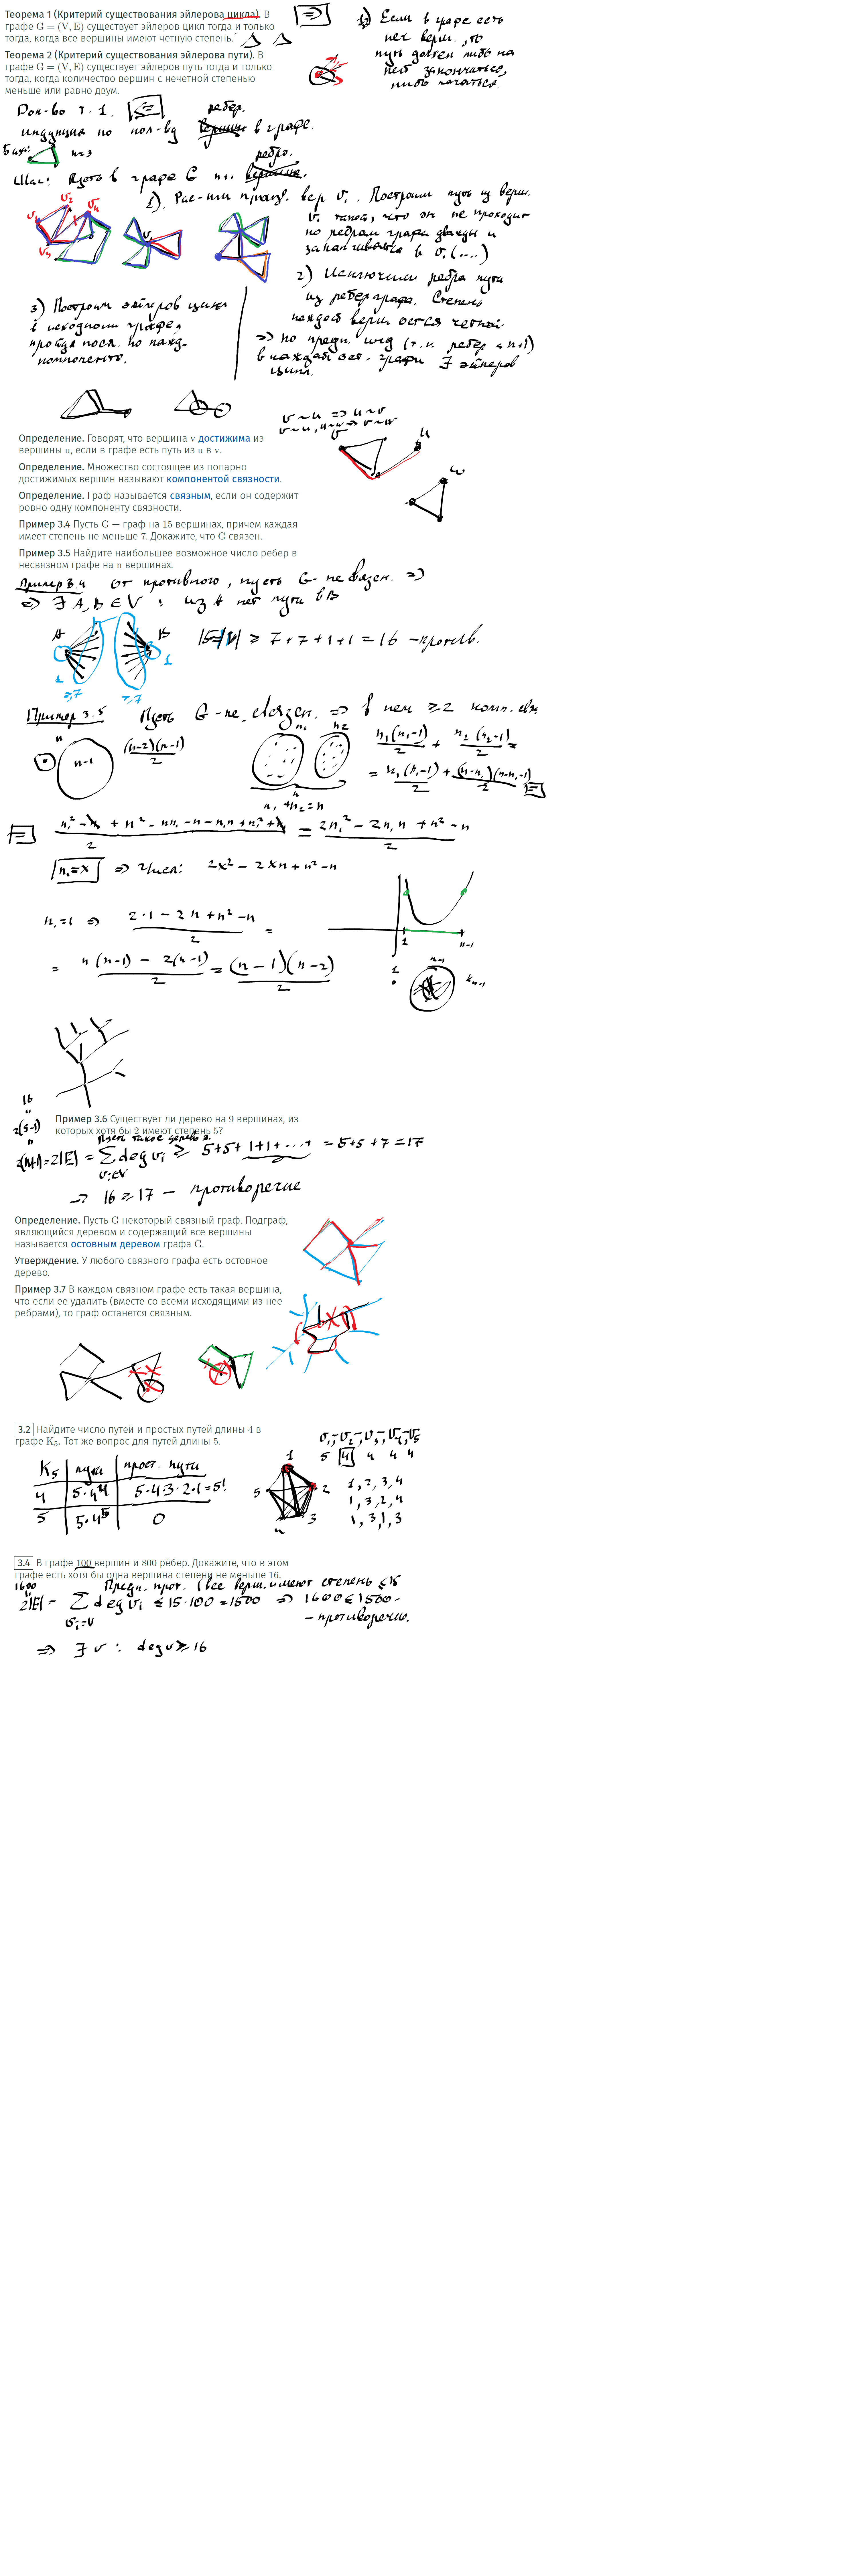 Теорема 1 (Критерий существования эйлерова цикла). В
графе G = (V, E) существует эйлеров цикл тогда и только
тогда, когда все вершины имеют четную степень.
Теорема 2 (Критерий существования эйлерова пути). В
графе G = (V, E) существует эйлеров путь тогда и только
тогда, когда количество вершин с нечетной степенью
меньше или равно двум.
⇒
1) Если в графе есть
неч верш., то
путь должен либо на
ней закончиться,
либо начаться.
Док-во т. 1. ⇐
ребер.
индукция по кол-ву вершин в графе.
База: n=3
ребро.
Шаг: Пусть в графе G n+1 вершина.
1). Рас-им произв. вер v₁. Построим путь из верш.
v₁ такой, что он не проходит
по ребрам графа дважды и
заканчивался в v₁ (....)
2) Исключим ребра пути
из ребер графа. Степень
каждой верш остся четной
⇒ по предп. инд (т.к. ребер < n+1)
в каждой ост. графе ∃ эйлеров
цикл.
3) Построим эйлеров цикл
в исходном графе,
пройдя посл. по кажд.
компоненте.
Определение. Говорят, что вершина v достижима из
вершины u, если в графе есть путь из u в v.
Определение. Множество состоящее из попарно
достижимых вершин называют компонентой связности.
Определение. Граф называется связным, если он содержит
ровно одну компоненту связности.
Пример 3.4 Пусть G — граф на 15 вершинах, причем каждая
имеет степень не меньше 7. Докажите, что G связен.
Пример 3.5 Найдите наибольшее возможное число ребер в
несвязном графе на n вершинах.
v~u ⇒ u~v
v~u, u~w ⇒ v~w
v
u
w
Пример 3.4 От противного, пусть G - не связен. ⇒
⇒ ∃ A, B ∈ V : из A нет пути в B
A B
1 1
≥7 ≥7
15=|V| ≥ 7+7+1+1 = 16 - против.
Пример 3.5 Пусть G - не связен. ⇒ в нем ≥2 комп. св.
n n-1 (n-2)(n-1)/2
n₁ n₂
n
n₁+n₂=n
n₁(n₁-1)/2 + n₂(n₂-1)/2 =
= n₁(n₁-1)/2 + (n-n₁)(n-n₁-1)/2 =
= (n₁² - n₁ + n² - nn₁ - n - n₁n + n₁² + n₁)/2 = (2n₁² - 2n₁n + n² - n)/2
n₁=x ⇒ Числ: 2x² - 2xn + n² - n
n₁=1 ⇒ (2·1 - 2n + n² - n)/2 =
= (n(n-1) - 2(n-1))/2 = (n-1)(n-2)/2
1 n-1
1 n-1 Kₙ₋₁
Пример 3.6 Существует ли дерево на 9 вершинах, из
которых хотя бы 2 имеют степень 5?
Пусть такое дерево ∃.
16
"
2(9-1)
"
2(n-1)=2|E| = ∑ deg vᵢ ≥ 5+5+1+1+...+ = 5+5+7 = 17
vᵢ∈V
⇒ 16 ≥ 17 — противоречие
Определение. Пусть G некоторый связный граф. Подграф,
являющийся деревом и содержащий все вершины
называется остовным деревом графа G.
Утверждение. У любого связного графа есть остовное
дерево.
Пример 3.7 В каждом связном графе есть такая вершина,
что если ее удалить (вместе со всеми исходящими из нее
ребрами), то граф останется связным.
3.2 Найдите число путей и простых путей длины 4 в
графе K₅. Тот же вопрос для путей длины 5.
K₅ пути прост. пути
4 5·4⁴ 5·4·3·2·1=5!
5 5·4⁵ 0
1 2 3 4 5
v₁-v₂-v₃-v₄-v₅
5 4 4 4 4
1, 2, 3, 4
1, 3, 2, 4
1, 3, 1, 3
3.4 В графе 100 вершин и 800 рёбер. Докажите, что в этом
графе есть хотя бы одна вершина степени не меньше 16.
Предп. прот. (все верш. имеют степень ≤15
1600
"
2|E| = ∑ deg vᵢ ≤ 15·100 = 1500 ⇒ 1600 ≤ 1500 -
vᵢ∈V
- противоречие.
⇒ ∃ v : deg v ≥ 16